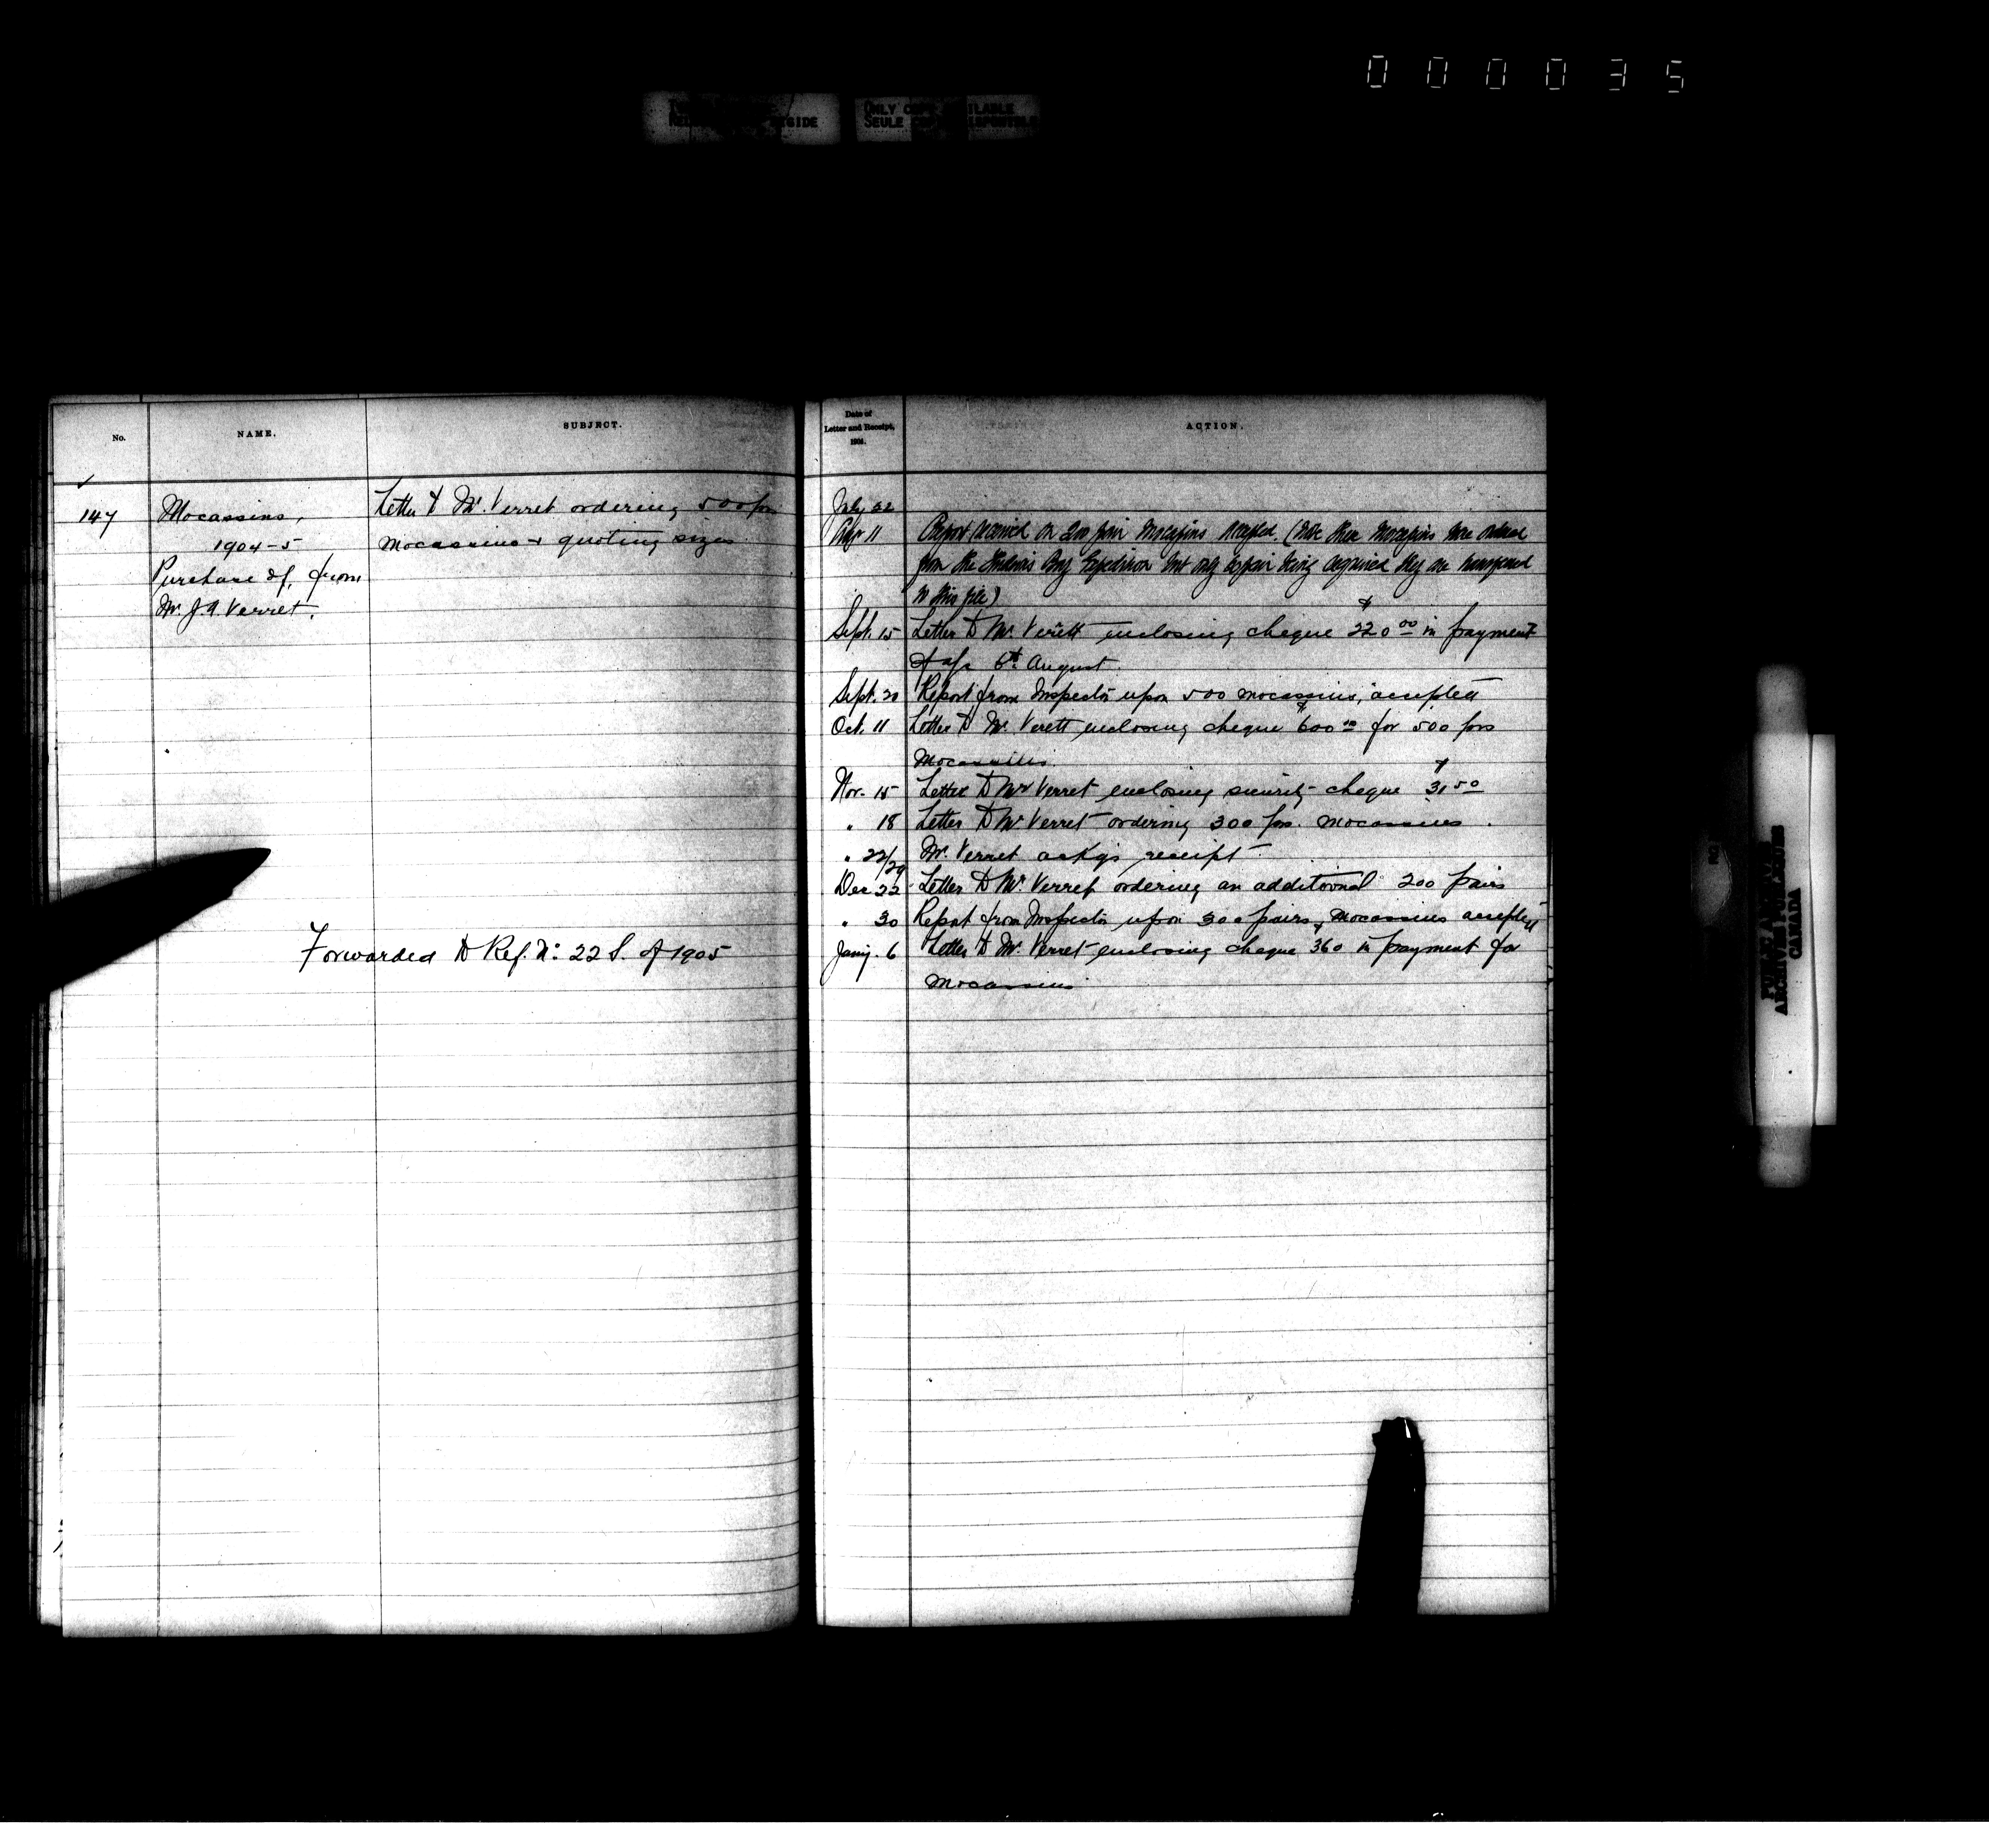 000035
ONLY COPY AVAILABLE
SEULE
No.
NAME.
SUBJECT.
147
Mocassins,
1904-5
Purchase of, from
Mr. J.A. Verret.
Letter to Mr. Verret ordering 500 prs
Mocassins & quoting sizes
Forwarded to Ref. No: 22 S. of 1905
Date of
Letter and Receipt,
1904.
ACTION.
July 22
Report received on 200 pair Mocassins accepted. (Note these Mocassins were ordered
from the Hudsons Bay Expedition but only pair being required they are transferred
to this file)
Sept. 15 Letter to Mr. Verett enclosing cheque $220.00 in payment
of a/c 6th August.
Sept. 20 Report from Inspector upon 500 mocassins, accepted
Oct. 11 Letter to Mr. Verett enclosing cheque $600.00 for 500 prs
Mocassins.
Nov. 15 Letter to Mr Verret enclosing security cheque $31.50
" 18 Letter to Mr Verret ordering 300 prs. mocassins.
" 22/29 Mr. Verret ackgs receipt.
Dec 22 Letter to Mr. Verret ordering an additional 200 pairs
" 30 Report from Inspector upon 300 pairs mocassins accepted
Jany. 6 Letter to Mr. Verret enclosing cheque $360 in payment for
Mocassins
PUBLIC ARCHIVES
ARCHIVES PUBLIQUES
CANADA